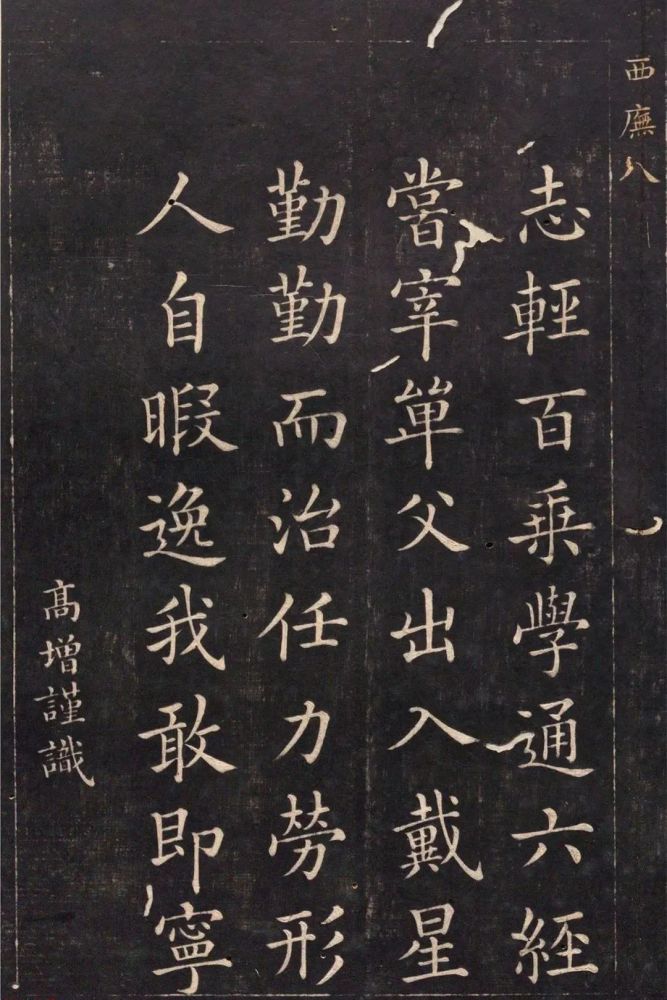 西廡八
志輕百乘學通六經
嘗宰單父出入戴星
勤勤而治任力勞形
人自暇逸我敢即寧
高增謹識